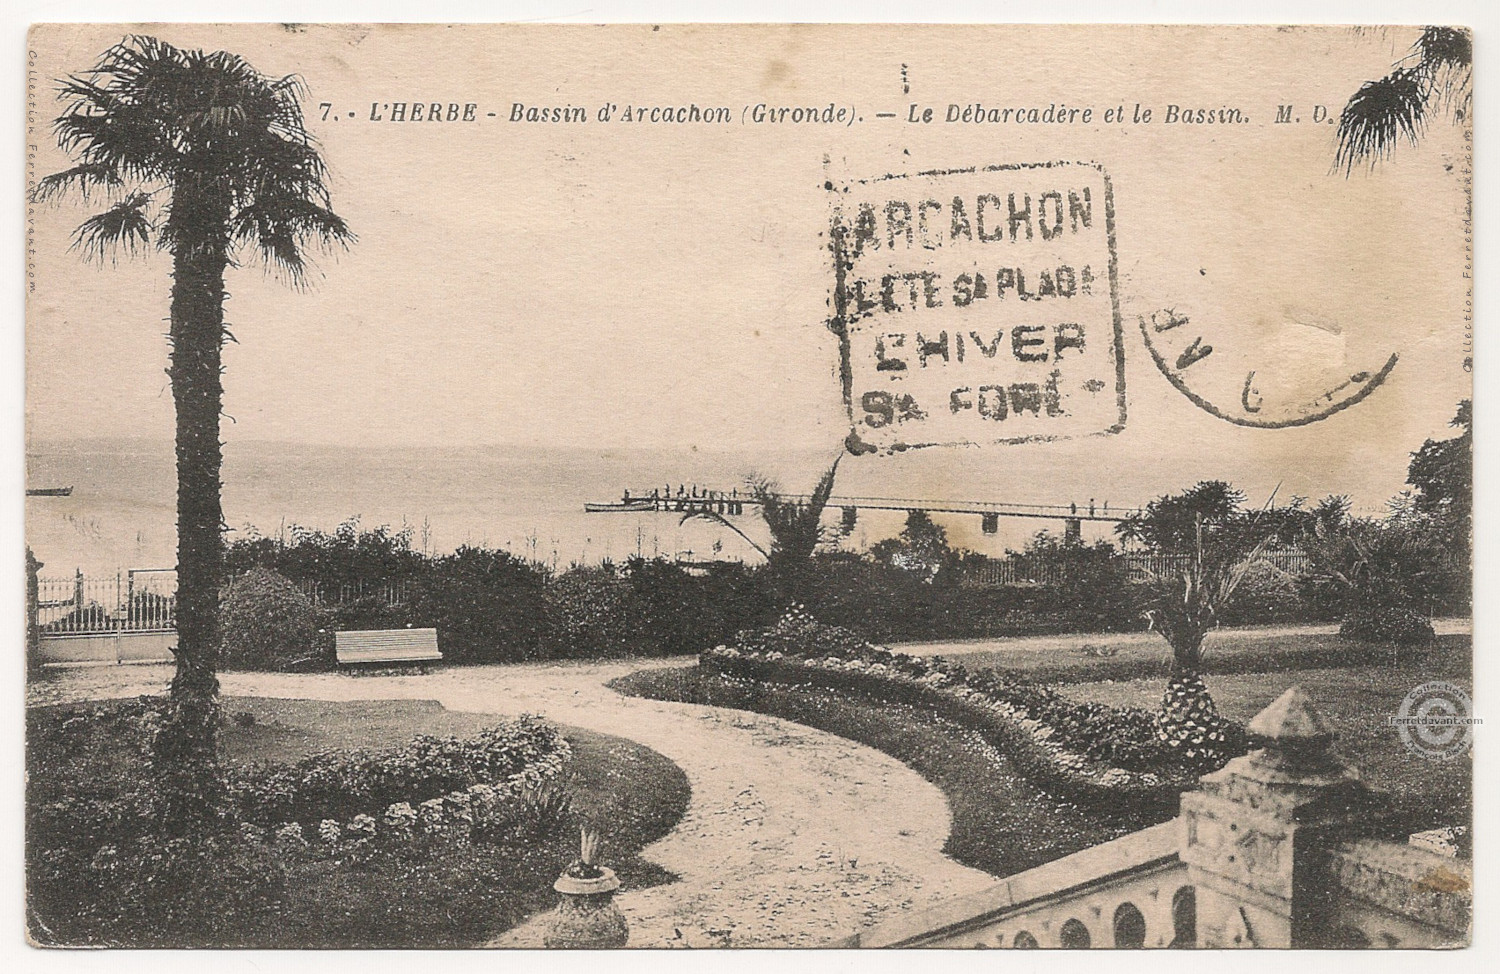 7. - L'HERBE - Bassin d'Arcachon (Gironde). — Le Débarcadère et le Bassin. M. D.
ARCACHON
L'ETE SA PLAGE
L'HIVER
SA FORÊT
Collection Ferretdavant.com
Collection Ferretdavant.com
Collection
Ferretdavant.com